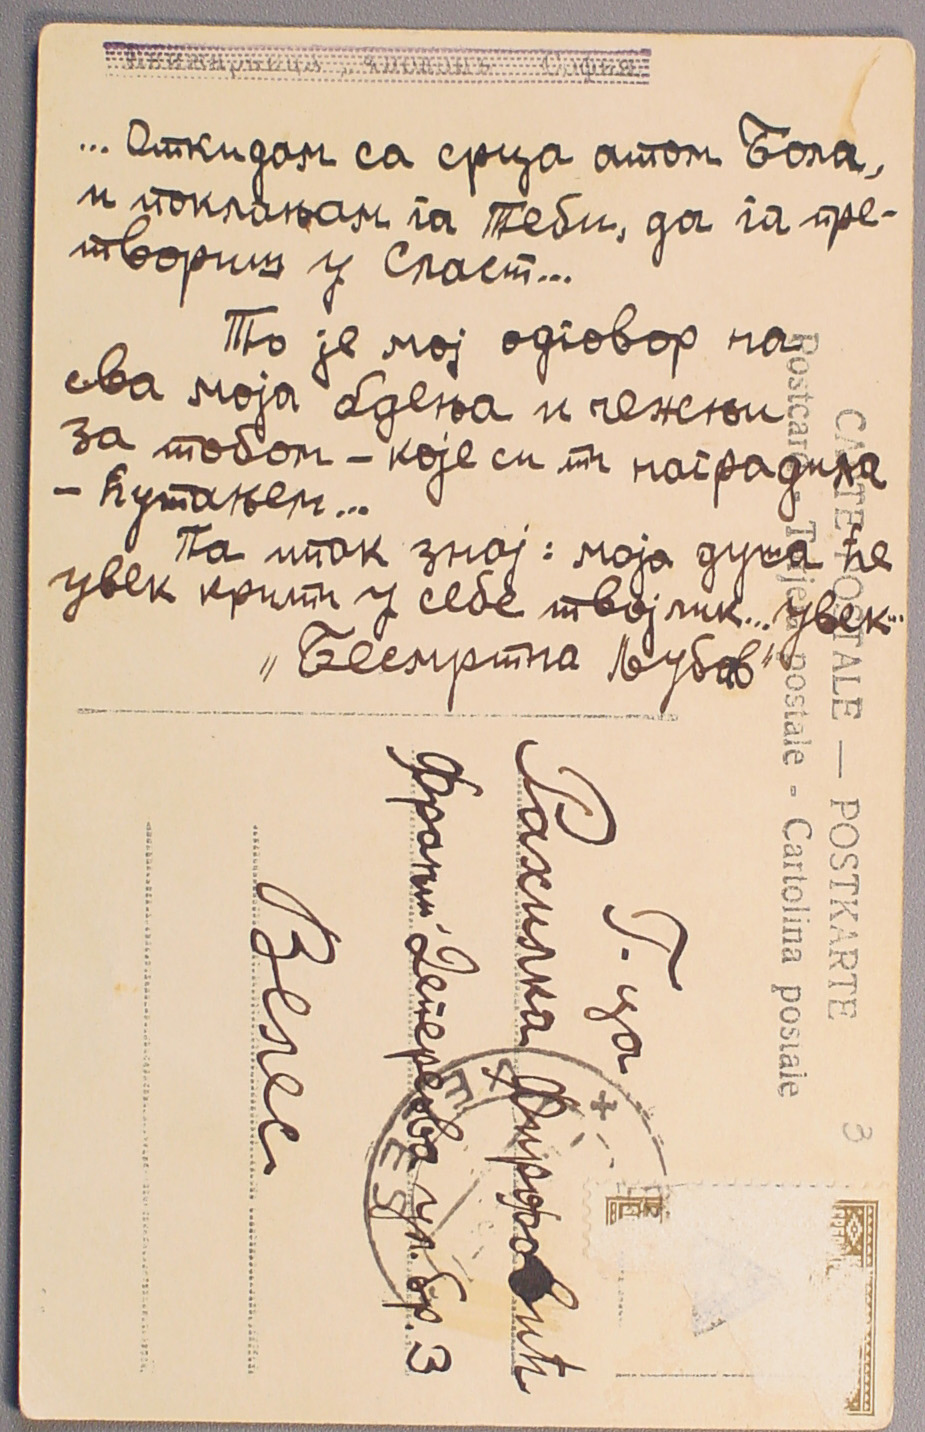 ... Откидам са срца атом Бола,
и поклањам га Теби, да га пре-
твориш у Сласт...
То је мој одговор на
сва моја бдења и чежњи
за тобом – које си ти наградила
– ћутањем...
Па ипак знај: моја душа ће
увек крити у себе твој лик... увек...
„Бесмртна Љубав"
CARTE POSTALE — POSTKARTE
Postcard - postale - Cartolina postale
3
Г-ца
Рахилка
ул. бр. 3
Велес